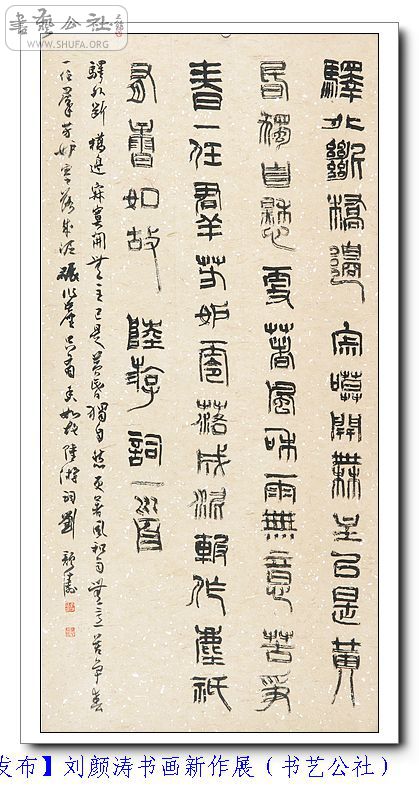 書藝公社
WWW.SHUFA.ORG
驛外斷橋邊寂寞開無主已是黃
昏獨自愁更著風和雨無意苦爭
春一任群芳妒零落成泥輾作塵祇
有香如故 陸游詞一首
驛外斷橋邊寂寞開無主已是黃昏獨自愁更著風和雨無意苦爭春
一任羣芳妒零落成泥碾作塵只有香如故陸游詞劉顏濤
发布】刘颜涛书画新作展（书艺公社）